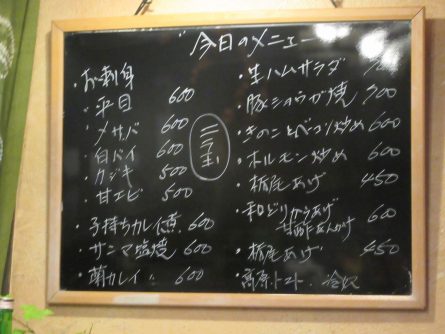 今日のメニュー
・お刺身
平目 600
〆サバ 600
白バイ 600
カジキ 500
甘エビ 500
・子持ちカレイ煮 600
・サンマ塩焼 600
・菊カレイ 600
三玉
・生ハムサラダ
・豚ショウガ焼 700
・きのことベーコン炒め 600
・ホルモン炒め 600
・栃尾あげ 450
・和どりからあげ 600
甘酢あんかけ
・栃尾あげ 450
・高原トマト 冷奴